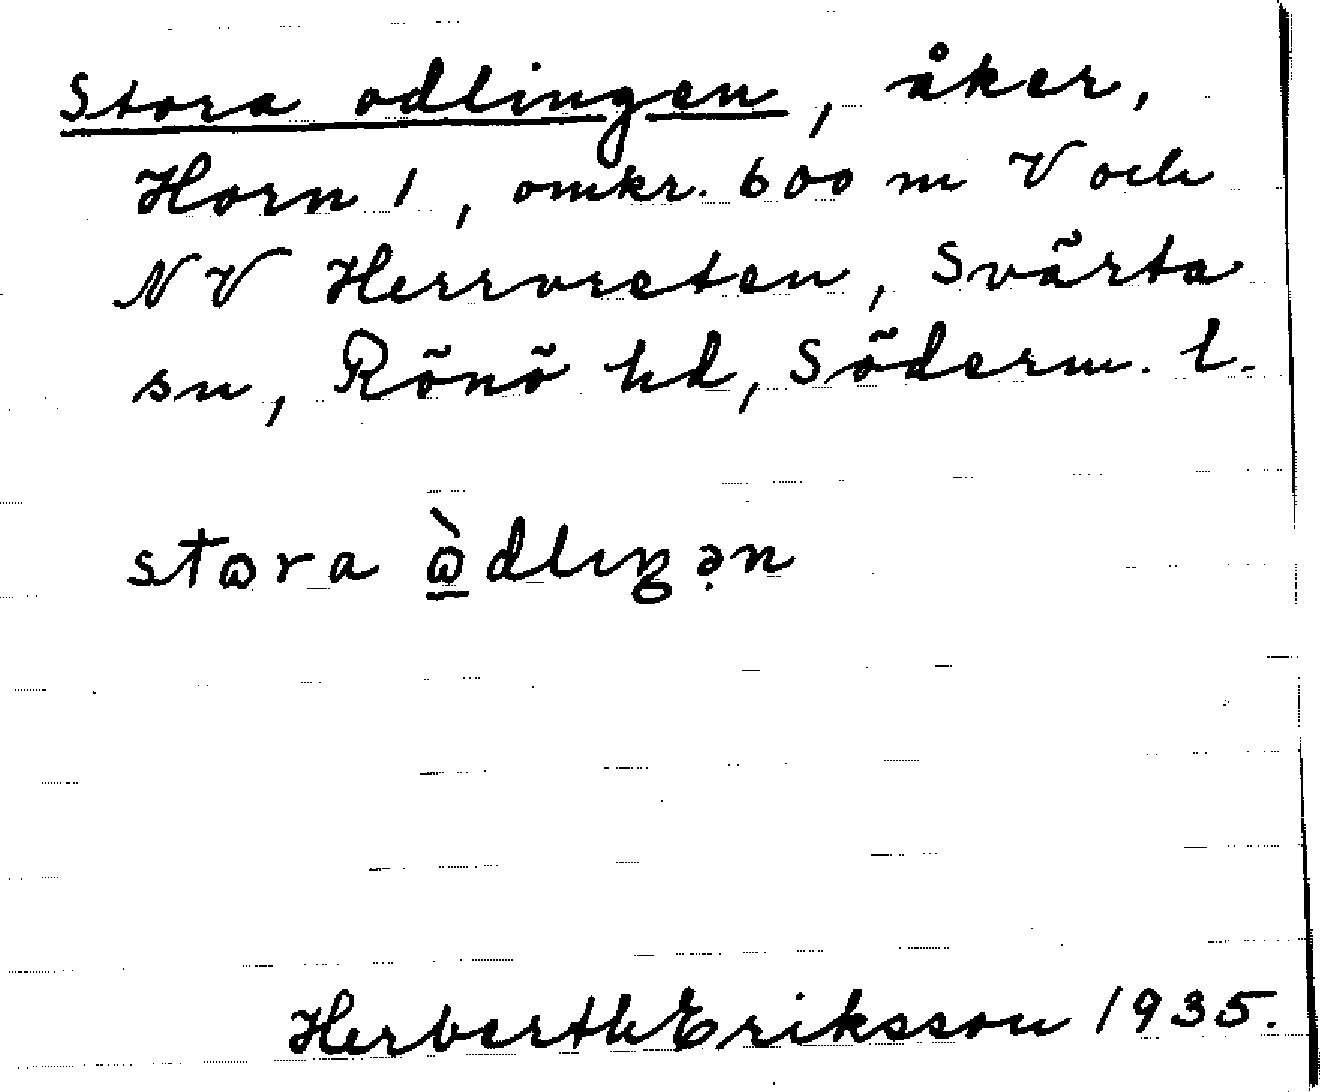 Stora odlingen, åker,
Horn 1, omkr. 600 m V och
NV Herrvreten, Svärta
sn, Rönö hd, Söderm. l.
stɷra ɷ̱̀dlıŋə̣n
Herberth Eriksson 1935.